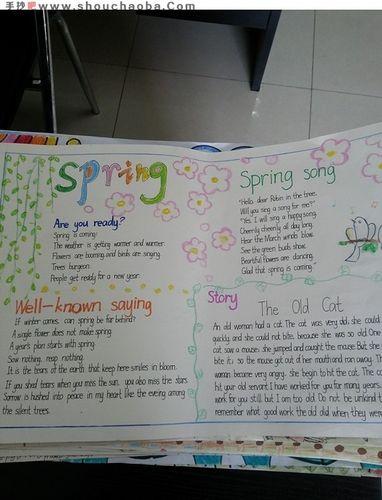 手抄吧 www.shouchaoba.com
Spring
Are you ready?
Spring is coming!
The weather is getting warmer and warmer.
Flowers are booming and birds are singing.
Trees burgeon.
People get ready for a new year.
Spring song
"Hello, dear Robin in the tree,
Will you sing a song for me?"
"Yes, I will sing a happy song,
Cheerily cheerily all day long.
Hear the March winds blow.
See the green buds show.
Beartiful flowers are dancing.
Glad that spring is coming."
Well-known saying
If winter comes, can spring be far behind?
A single flower does not make spring.
A year's plan starts with spring.
Sow nothing, reap nothing.
It is the tears of the earth that keep here smiles in bloom.
If you shed tears when you miss the sun, you also miss the stars.
Sorrow is hushed into peace in my heart like the evening among
the silent trees.
Story
The Old Cat
An old woman had a cat. The cat was very old; she could
quickly, and she could not bite, because she was so old. One
cat saw a mouse; she jumped and caught the mouse. But she
bite it; so the mouse got out of her mouth and ran away. Th
woman became very angry, she began to hit the cat. The c
hit your old servant. I have worked for you for many years,
work for you still, but I am too old. Do not be unkind t
remember what good work the old did when they were